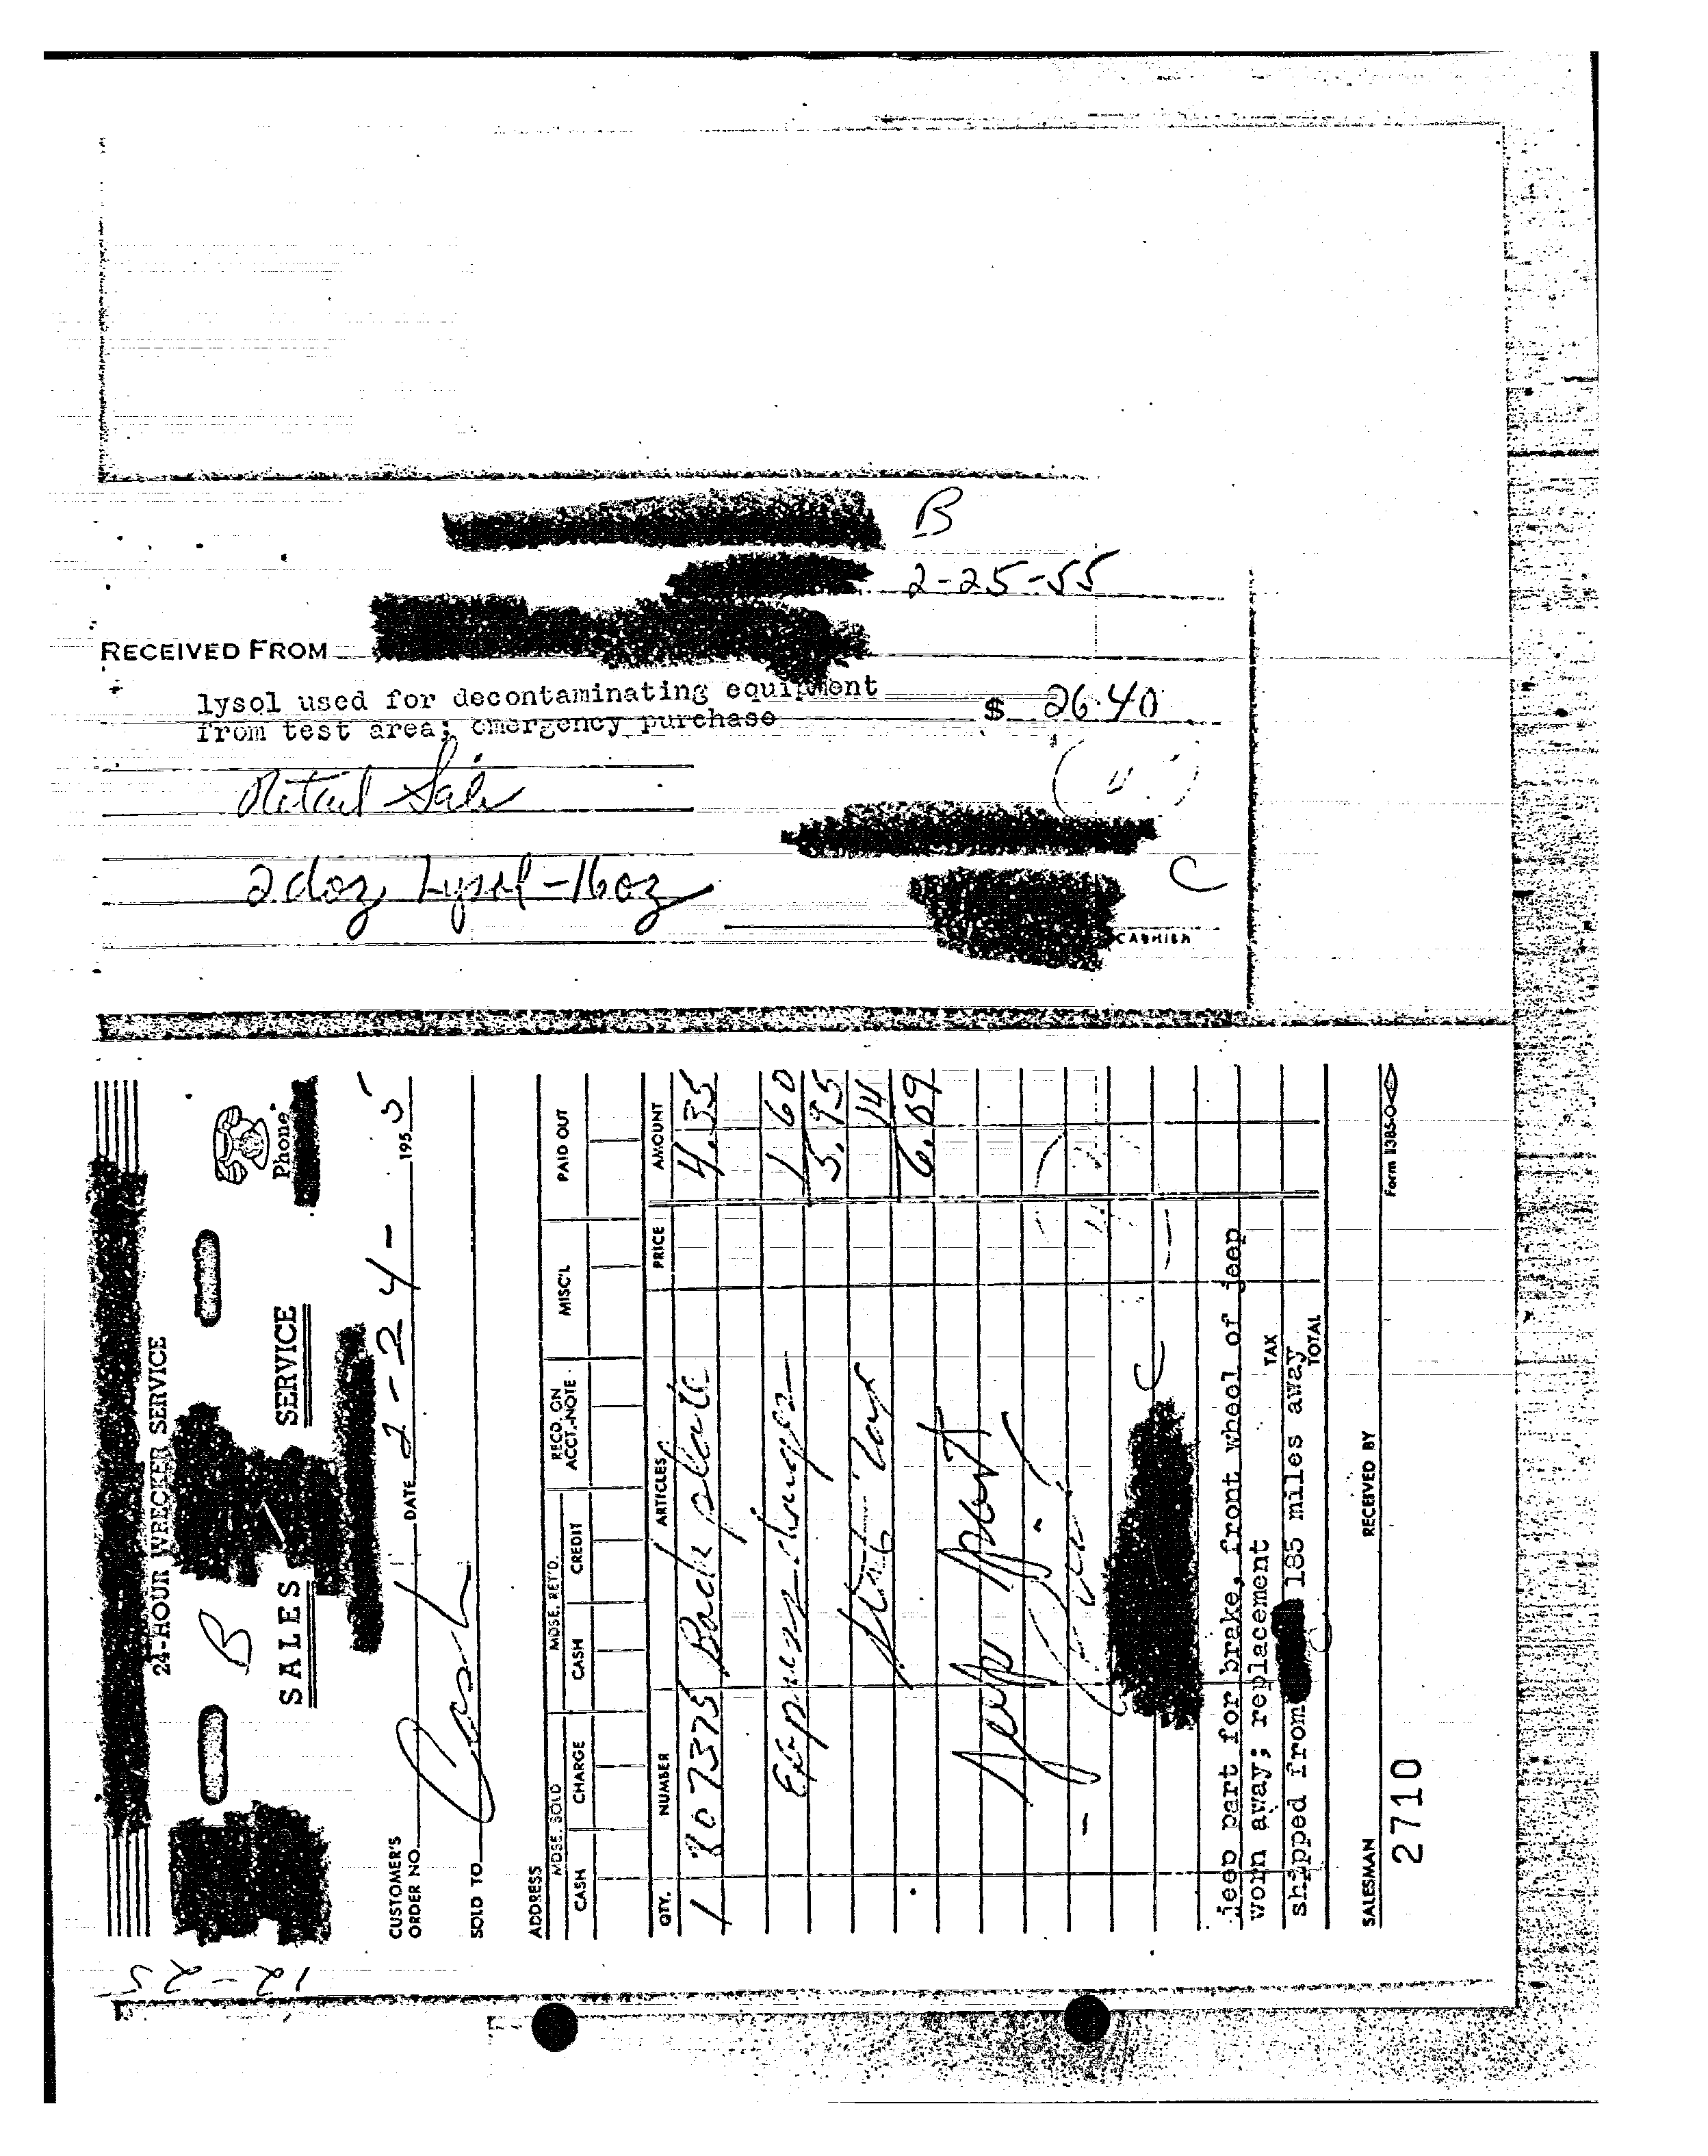 B
2-25-55
RECEIVED FROM
lysol used for decontaminating equipment
from test area; emergency purchase
$ 26.40
Retail Sale
2 doz Lysol-16oz
C
CASHIER
24-HOUR WRECKER SERVICE
B
Phone
SALES SERVICE
CUSTOMER'S ORDER NO. DATE 2-24- 1955
SOLD TO Cash
ADDRESS
MDSE. SOLD MDSE. RET'D. RECD. ON ACCT.-NOTE MISC'L PAID OUT
CASH CHARGE CASH CREDIT
QTY. NUMBER ARTICLES PRICE AMOUNT
1 807375 Back plate 4.35
Express charges 1 60
5.95
State Tax 14
6.09
Jeep part
C
jeep part for brake, front wheel of jeep
worn away; replacement
TAX
shipped from 185 miles away
TOTAL
SALESMAN RECEIVED BY
2710
Form 1385-O
12-25